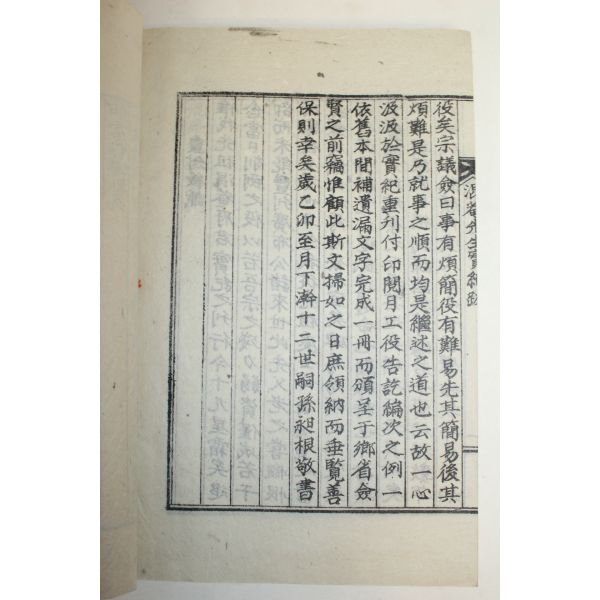 役矣宗議僉曰事有煩簡役有難易先其簡易後其
煩難是乃就事之順而均是繼述之道也云故一心
汲汲於實紀重刊付印閱月工役告訖編次之例一
依舊本間補遺漏文字完成一冊而頒呈于鄉省僉
賢之前竊惟顧此斯文掃如之日庶領納而垂覽善
保則幸矣歲乙卯至月下澣十二世嗣孫昶根敬書
先生實紀